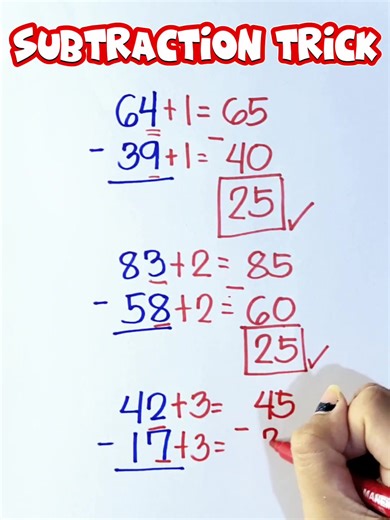 SUBTRACTION TRICK
64+1= 65
- 39+1= - 40
25 ✓
83+2= 85
- 58+2= - 60
25 ✓
42+3= 45
- 17+3= -